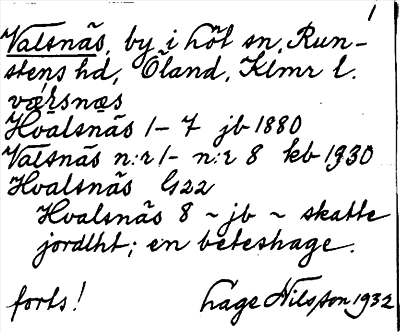 1
Valsnäs, by i höl sn, Run-
stens hd, Öland, Klmr l.
væ̣rsnæs
Hvalsnäs 1-7 jb 1880
Valsnäs n:r 1- n:r 8 kb 1930
Hvalsnäs G22
Hvalsnäs 8 ~ jb ~ skatte
jordlht; en beteshage.
forts! Tage Nilsson 1932